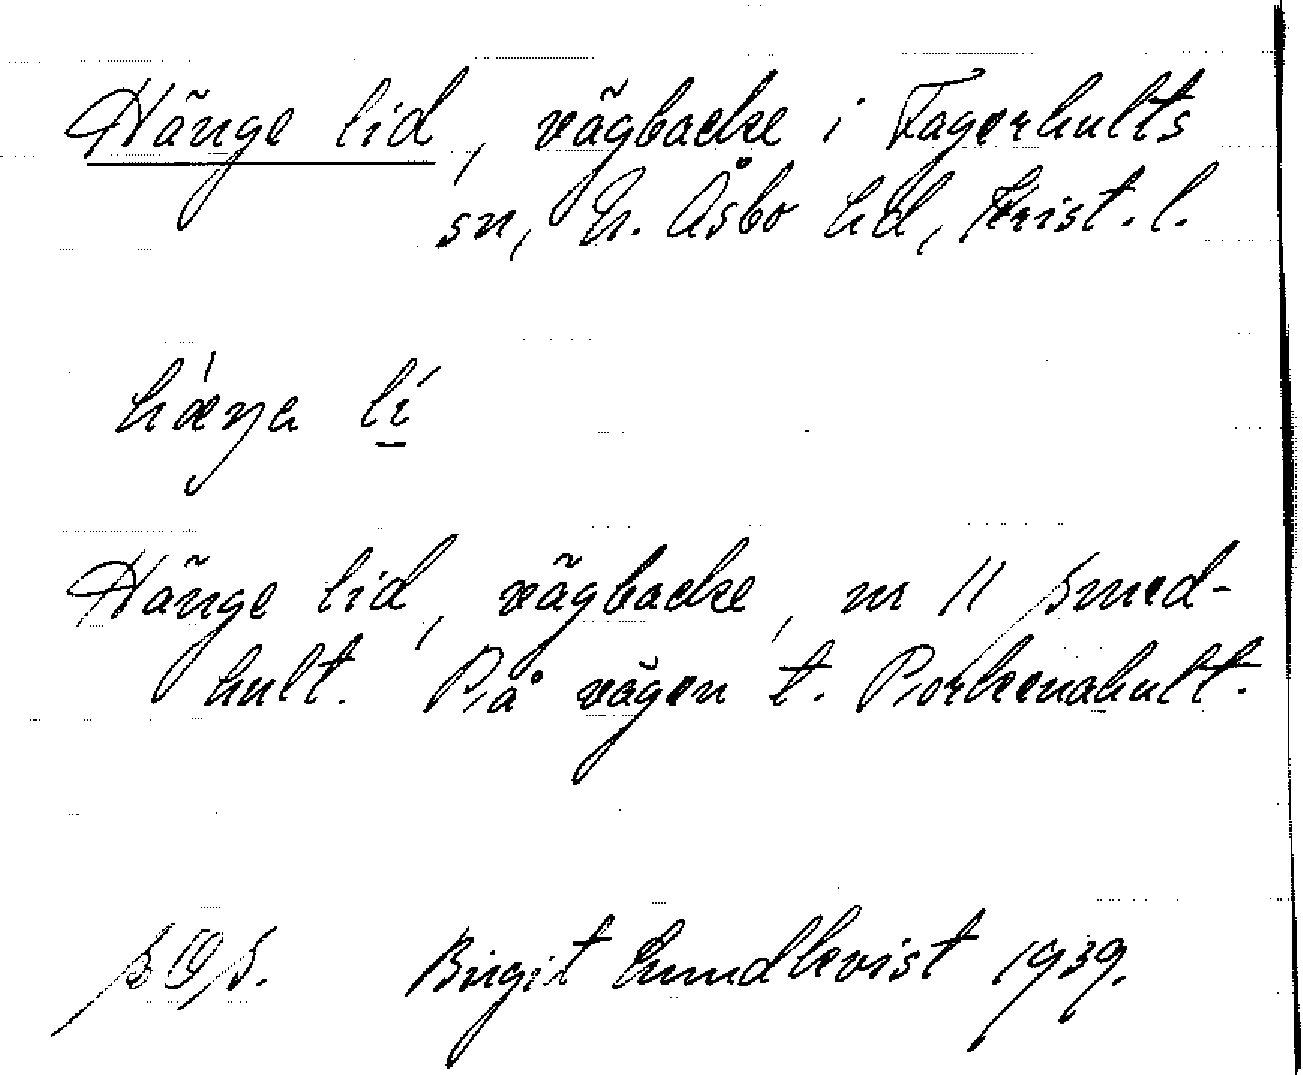 Hänge lid, vägbacke i Fagerhults
sn, N. Åsbo hd, Krist. l.
hæŋa lí
Hänge lid, vägbacke, m 11 Smed-
hult. På vägen t. Porkenahult.
SOS. Birgit Lundkvist 1939.